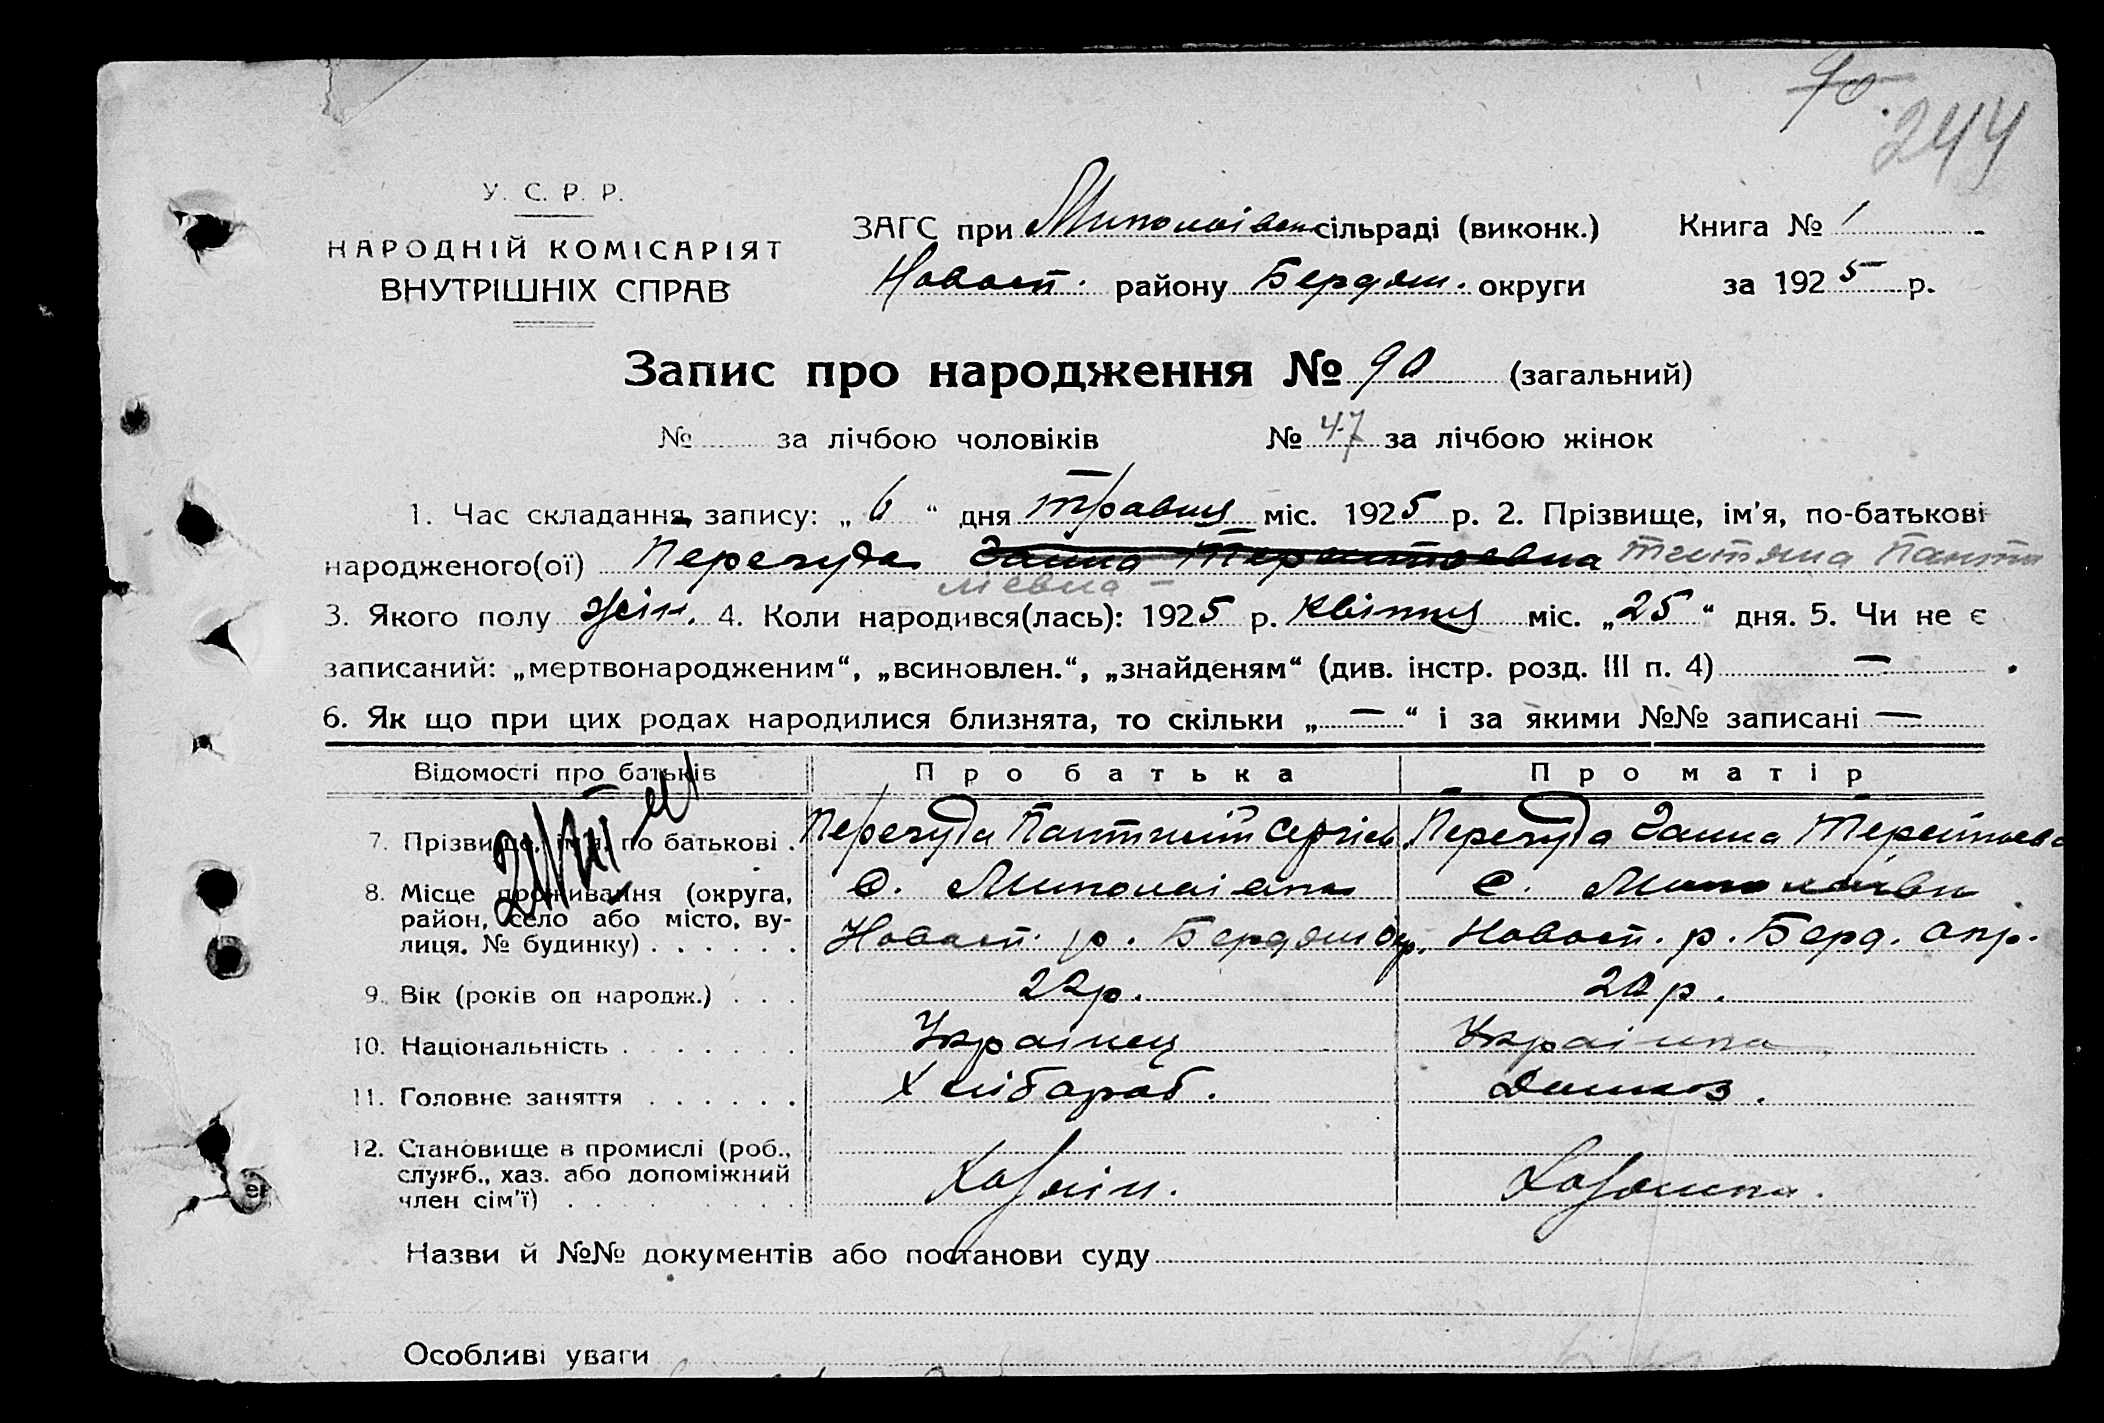 90.
244
У. С. Р. Р.
НАРОДНІЙ КОМІСАРІЯТ
ВНУТРІШНІХ СПРАВ
ЗАГС при Миколаївск сільраді (виконк.) Книга № 1
Новосп. району Бердян. округи за 1925 р.
Запис про народження № 90 (загальний)
№ за лічбою чоловіків № 47 за лічбою жінок
1. Час складання запису: „6“ дня травня міс. 1925 р. 2. Прізвище, ім'я, по-батькові
народженого(ої) Перечуда Ганна Тетяна Панти
лієвна –
3. Якого полу жін. 4. Коли народився(лась): 1925 р. квітня міс. „25“ дня. 5. Чи не є
записаний: „мертвонародженим“, „всиновлен.“, „знайденям“ (див. інстр. розд. III п. 4) — .
6. Як що при цих родах народилися близнята, то скільки „—“ і за якими №№ записані —
Відомості про батьків Про батька Про матір
7. Прізвище, ім'я, по батькові . Перечуда Пантилій Сергієв. Перечуда Ганна Терентьевна
8. Місце проживання (округа, с. Миколаівка с. Миколаівка
район, село або місто, ву-
лиця, № будинку) . . . . . . Новосп. р. Бердян Окр. Новосп. р. Берд. окр.
9. Вік (років од народж.) . . . 22 р. 20 р.
10. Національність . . . . . . . Українец Українка
11. Головне заняття . . . . . . Хлібороб. Домхоз.
12. Становище в промислі (роб.,
служб., хаз. або допоміжний Хазяін. Хазяйка.
член сім'ї) . . . . . . . . .
Назви й №№ документів або постанови суду
Особливі уваги